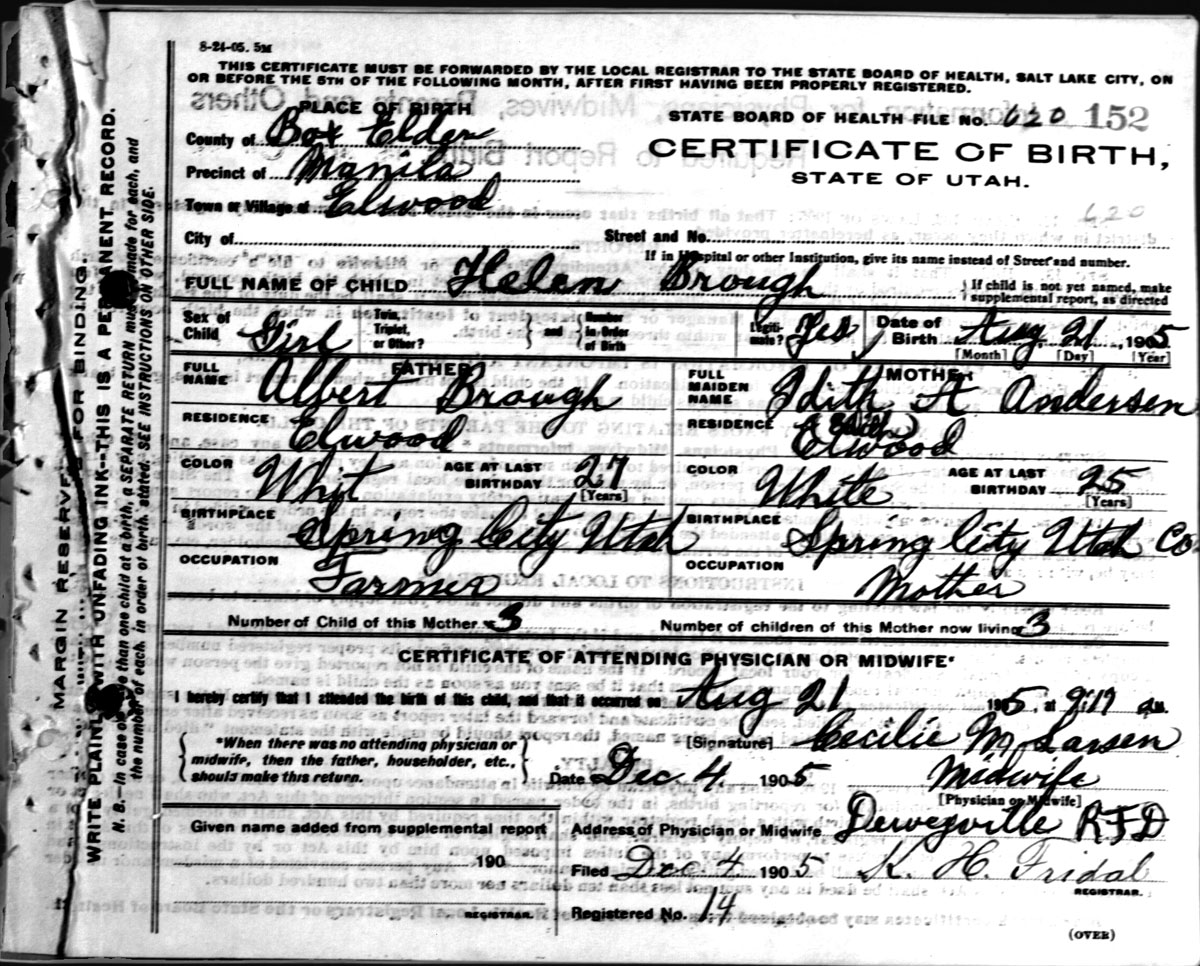 8-24-05. 5M
THIS CERTIFICATE MUST BE FORWARDED BY THE LOCAL REGISTRAR TO THE STATE BOARD OF HEALTH, SALT LAKE CITY, ON
OR BEFORE THE 5TH OF THE FOLLOWING MONTH, AFTER FIRST HAVING BEEN PROPERLY REGISTERED.
PLACE OF BIRTH
STATE BOARD OF HEALTH FILE NO. 620 152
County of Box Elder
CERTIFICATE OF BIRTH,
Precinct of Manila
STATE OF UTAH.
Town or Village of Elwood
620
City of
Street and No.
If in Hospital or other Institution, give its name instead of Street and number.
FULL NAME OF CHILD Helen Brough
If child is not yet named, make supplemental report, as directed
Sex of Child Girl
Twin, Triplet, or Other? and Number in Order of Birth
Legitimate? Yes
Date of Birth Aug 21, 1905
[Month] [Day] [Year]
FATHER
FULL NAME Albert Brough
MOTHER
FULL MAIDEN NAME Idith A Andersen
(Edith)
RESIDENCE Elwood
RESIDENCE Elwood
COLOR Whit AGE AT LAST BIRTHDAY 27 [Years]
COLOR White AGE AT LAST BIRTHDAY 25 [Years]
BIRTHPLACE Spring City Utah
BIRTHPLACE Spring City Utah Co
OCCUPATION Farmer
OCCUPATION Mother
Number of Child of this Mother 3
Number of children of this Mother now living 3
CERTIFICATE OF ATTENDING PHYSICIAN OR MIDWIFE*
I hereby certify that I attended the birth of this child, and that it occurred on Aug 21 1905, at 9:17 a M.
*When there was no attending physician or
midwife, then the father, householder, etc.,
should make this return.
[Signature] Cecilie M Larsen
Date Dec 4 1905 Midwife
[Physician or Midwife]
Given name added from supplemental report
190
REGISTRAR.
Address of Physician or Midwife Deweyville RFD
Filed Dec. 4 1905 K. H. Fridal
REGISTRAR.
Registered No. 14
(OVER)
MARGIN RESERVED FOR BINDING.
WRITE PLAINLY WITH UNFADING INK--THIS IS A PERMANENT RECORD.
N. B.—In case of more than one child at a birth, a SEPARATE RETURN must be made for each, and
the number of each, in order of birth, stated. SEE INSTRUCTIONS ON OTHER SIDE.